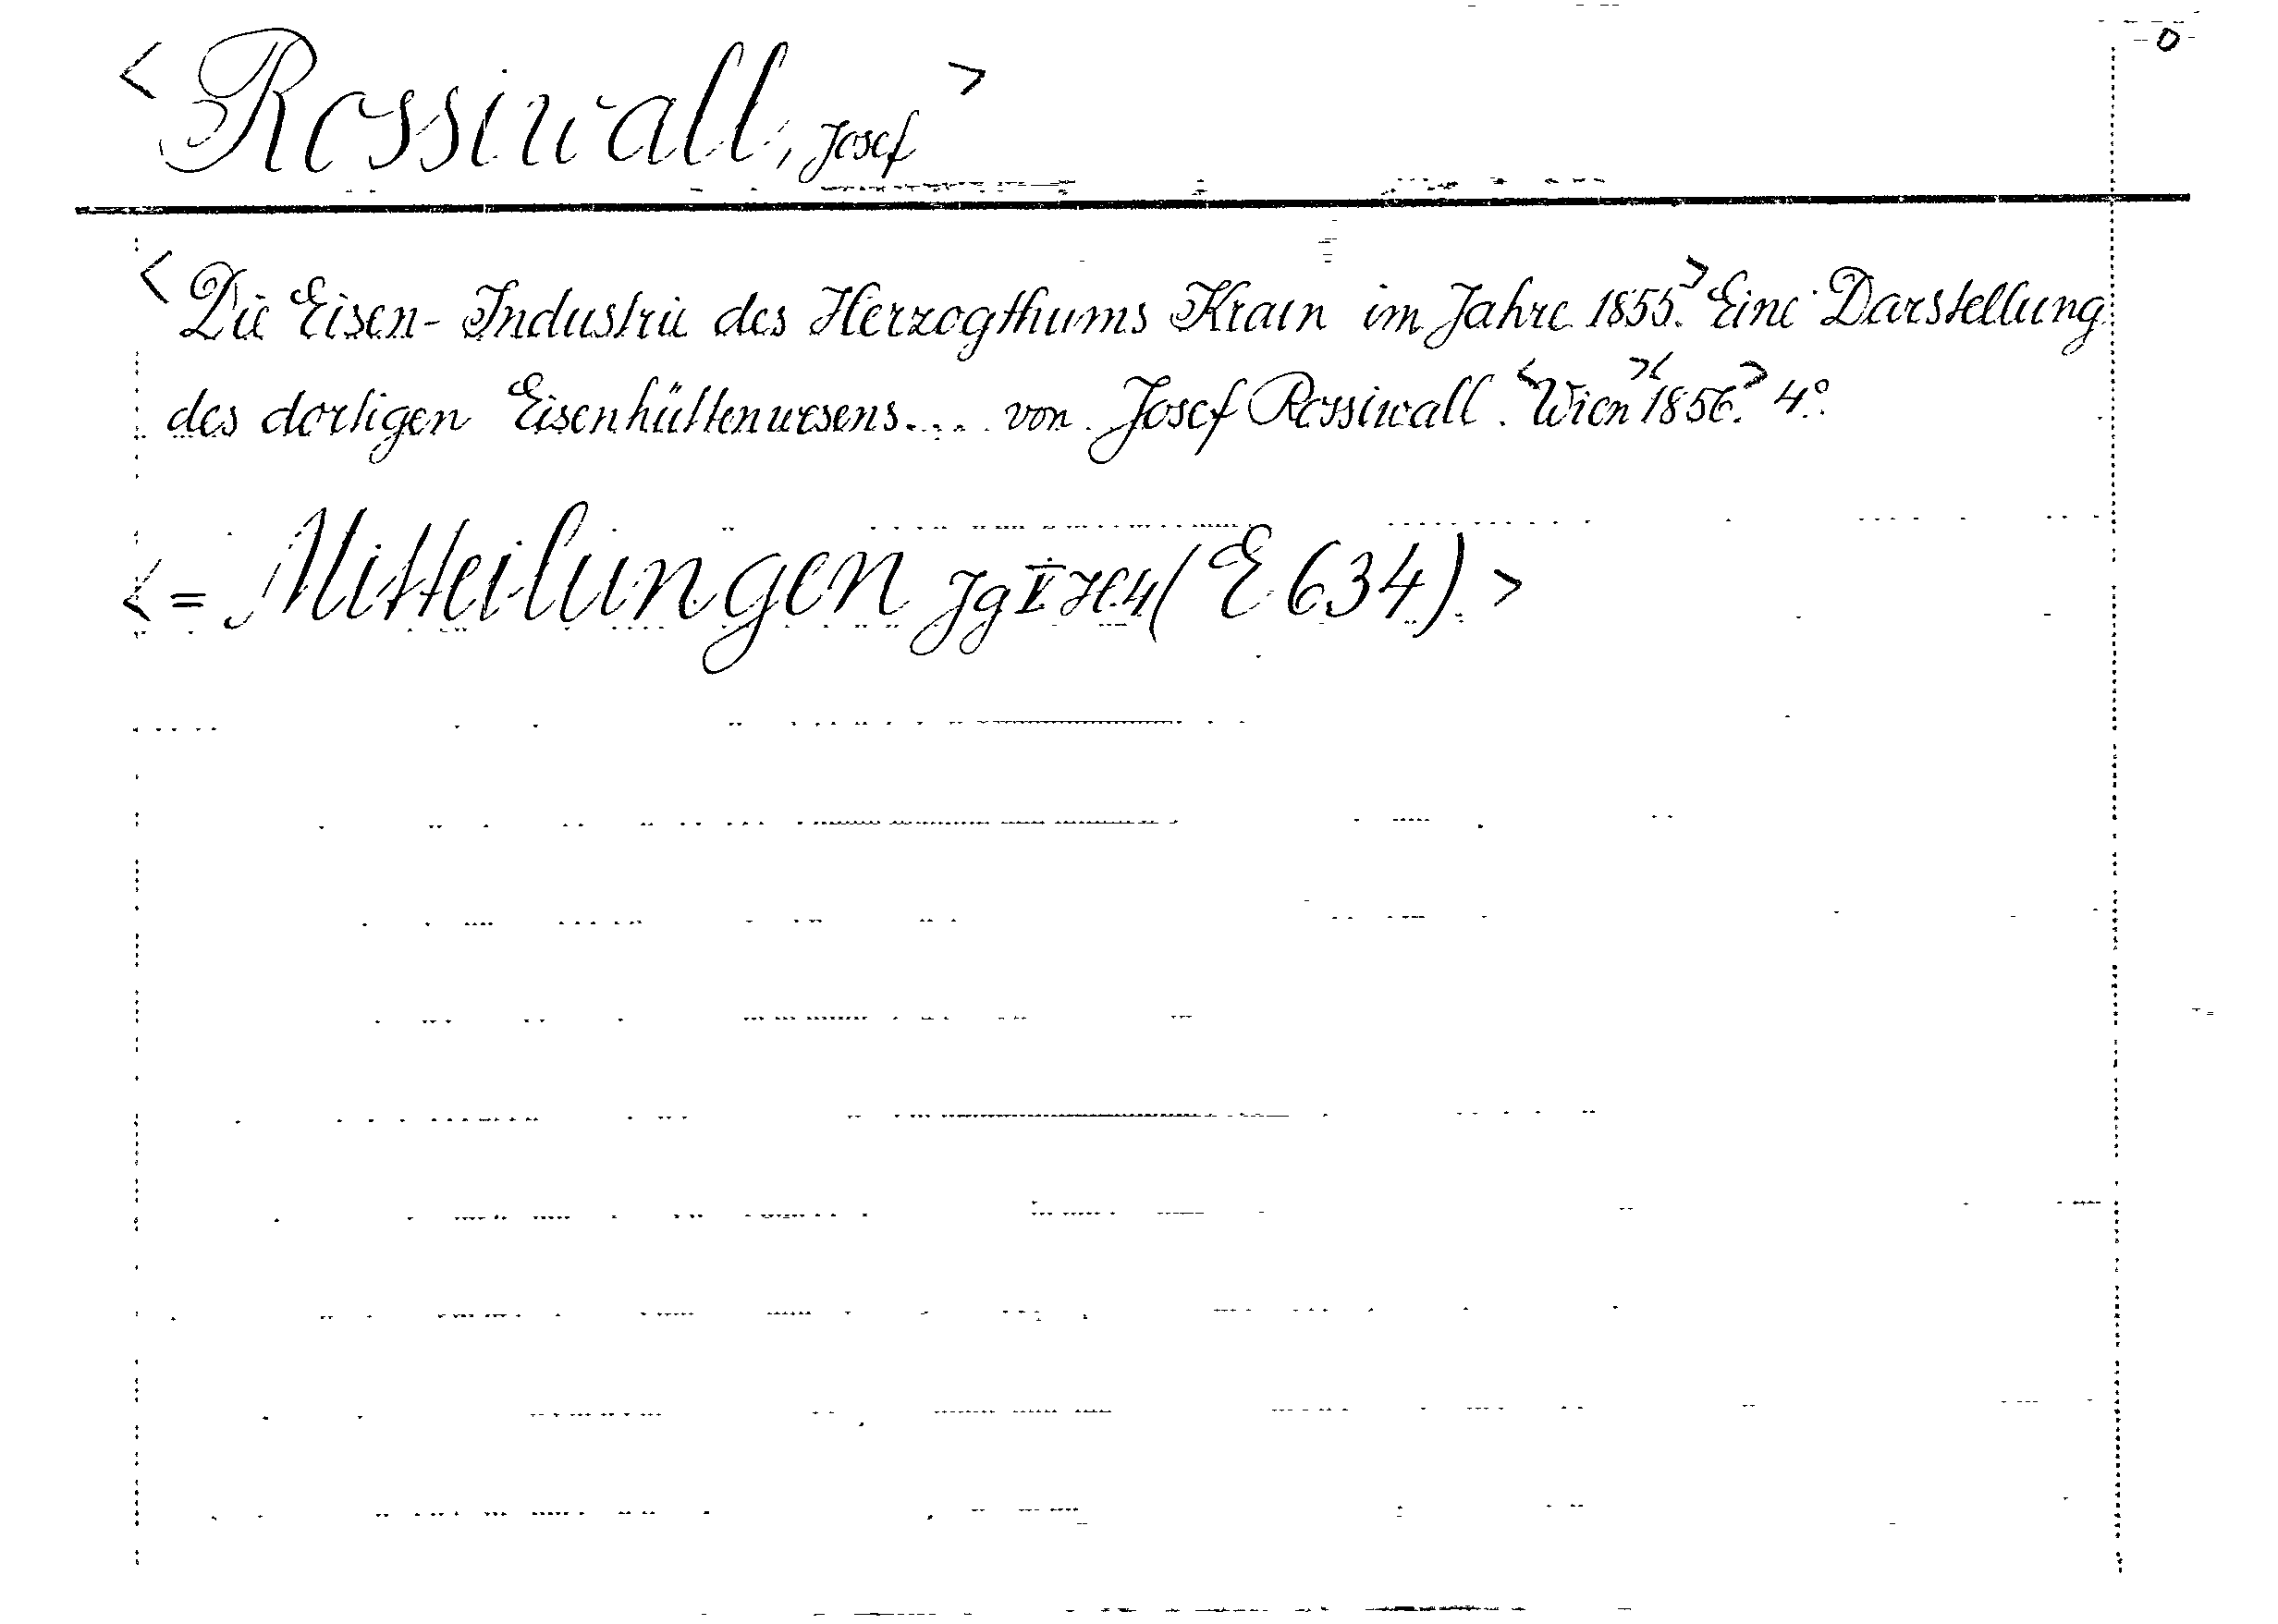 0
< Rossiwall, Josef >
< Die Eisen-Industrie des Herzogthums Krain im Jahre 1855.> Eine Darstellung
des dortigen Eisenhüttenwesens.... von Josef Rossiwall. <Wien >< 1856.> 4°.
< = Mitteilungen Jg V H.4 (E 634). >